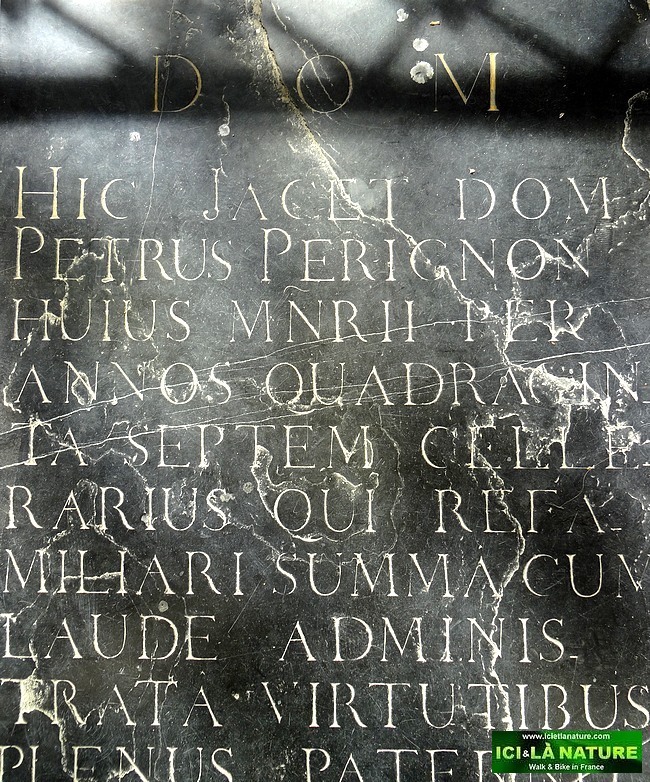 D O M
HIC JACET DOM
PETRUS PERIGNON
HUIUS MÑRII PER
ANNOS QUADRAGIN
TA SEPTEM CELLE-
RARIUS QUI REFA-
MILIARI SUMMA CUM
LAUDE ADMINIS-
TRATA VIRTUTIBUS
PLENUS PATERN
www.icietlanature.com
ICI & LÀ NATURE
Walk & Bike in France